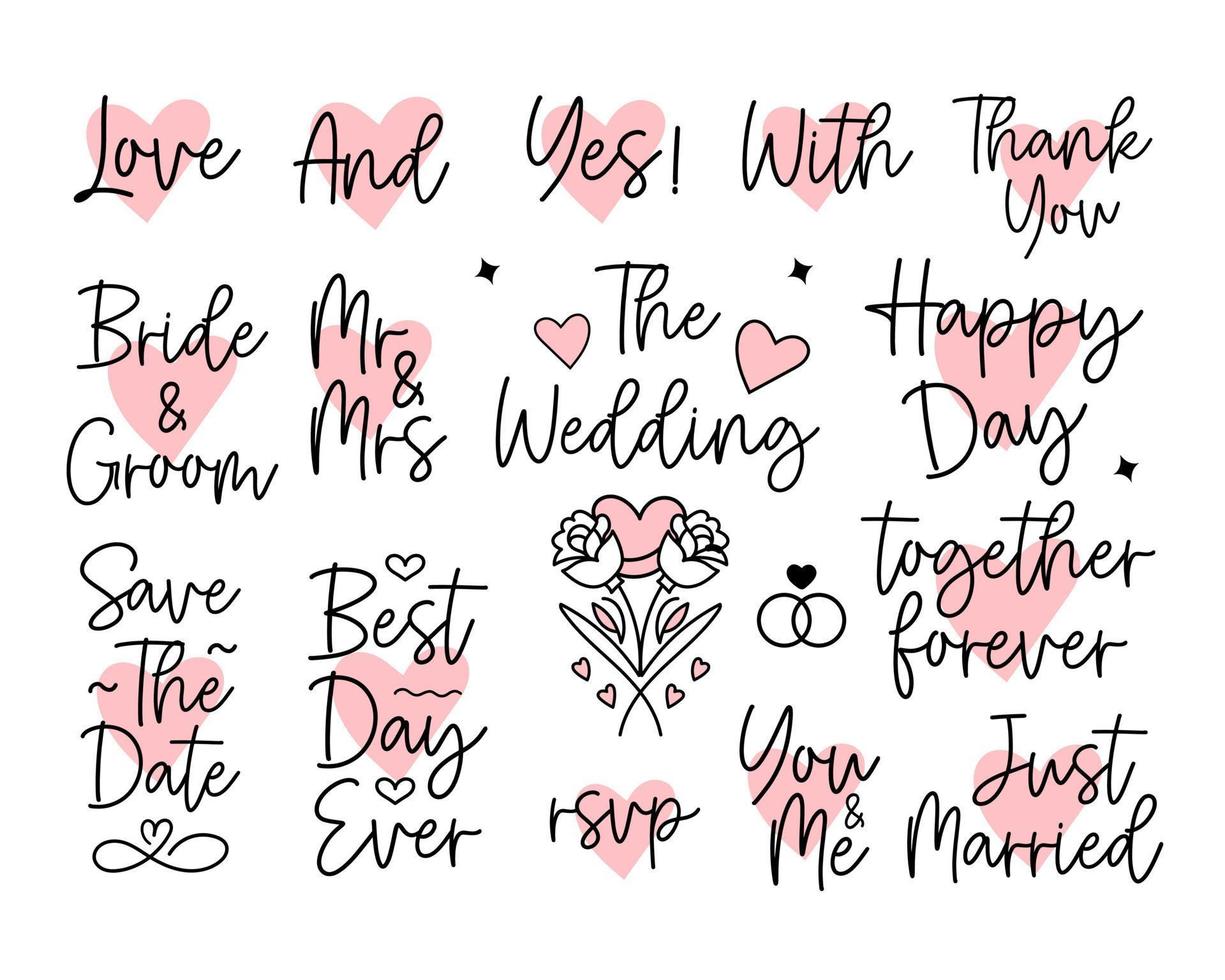 Love
And
Yes!
With
Thank
You
Bride
&
Groom
Mr
&
Mrs
The
Wedding
Happy
Day
Save
~The~
Date
Best
Day
Ever
together
forever
rsvp
You
&
Me
Just
Married